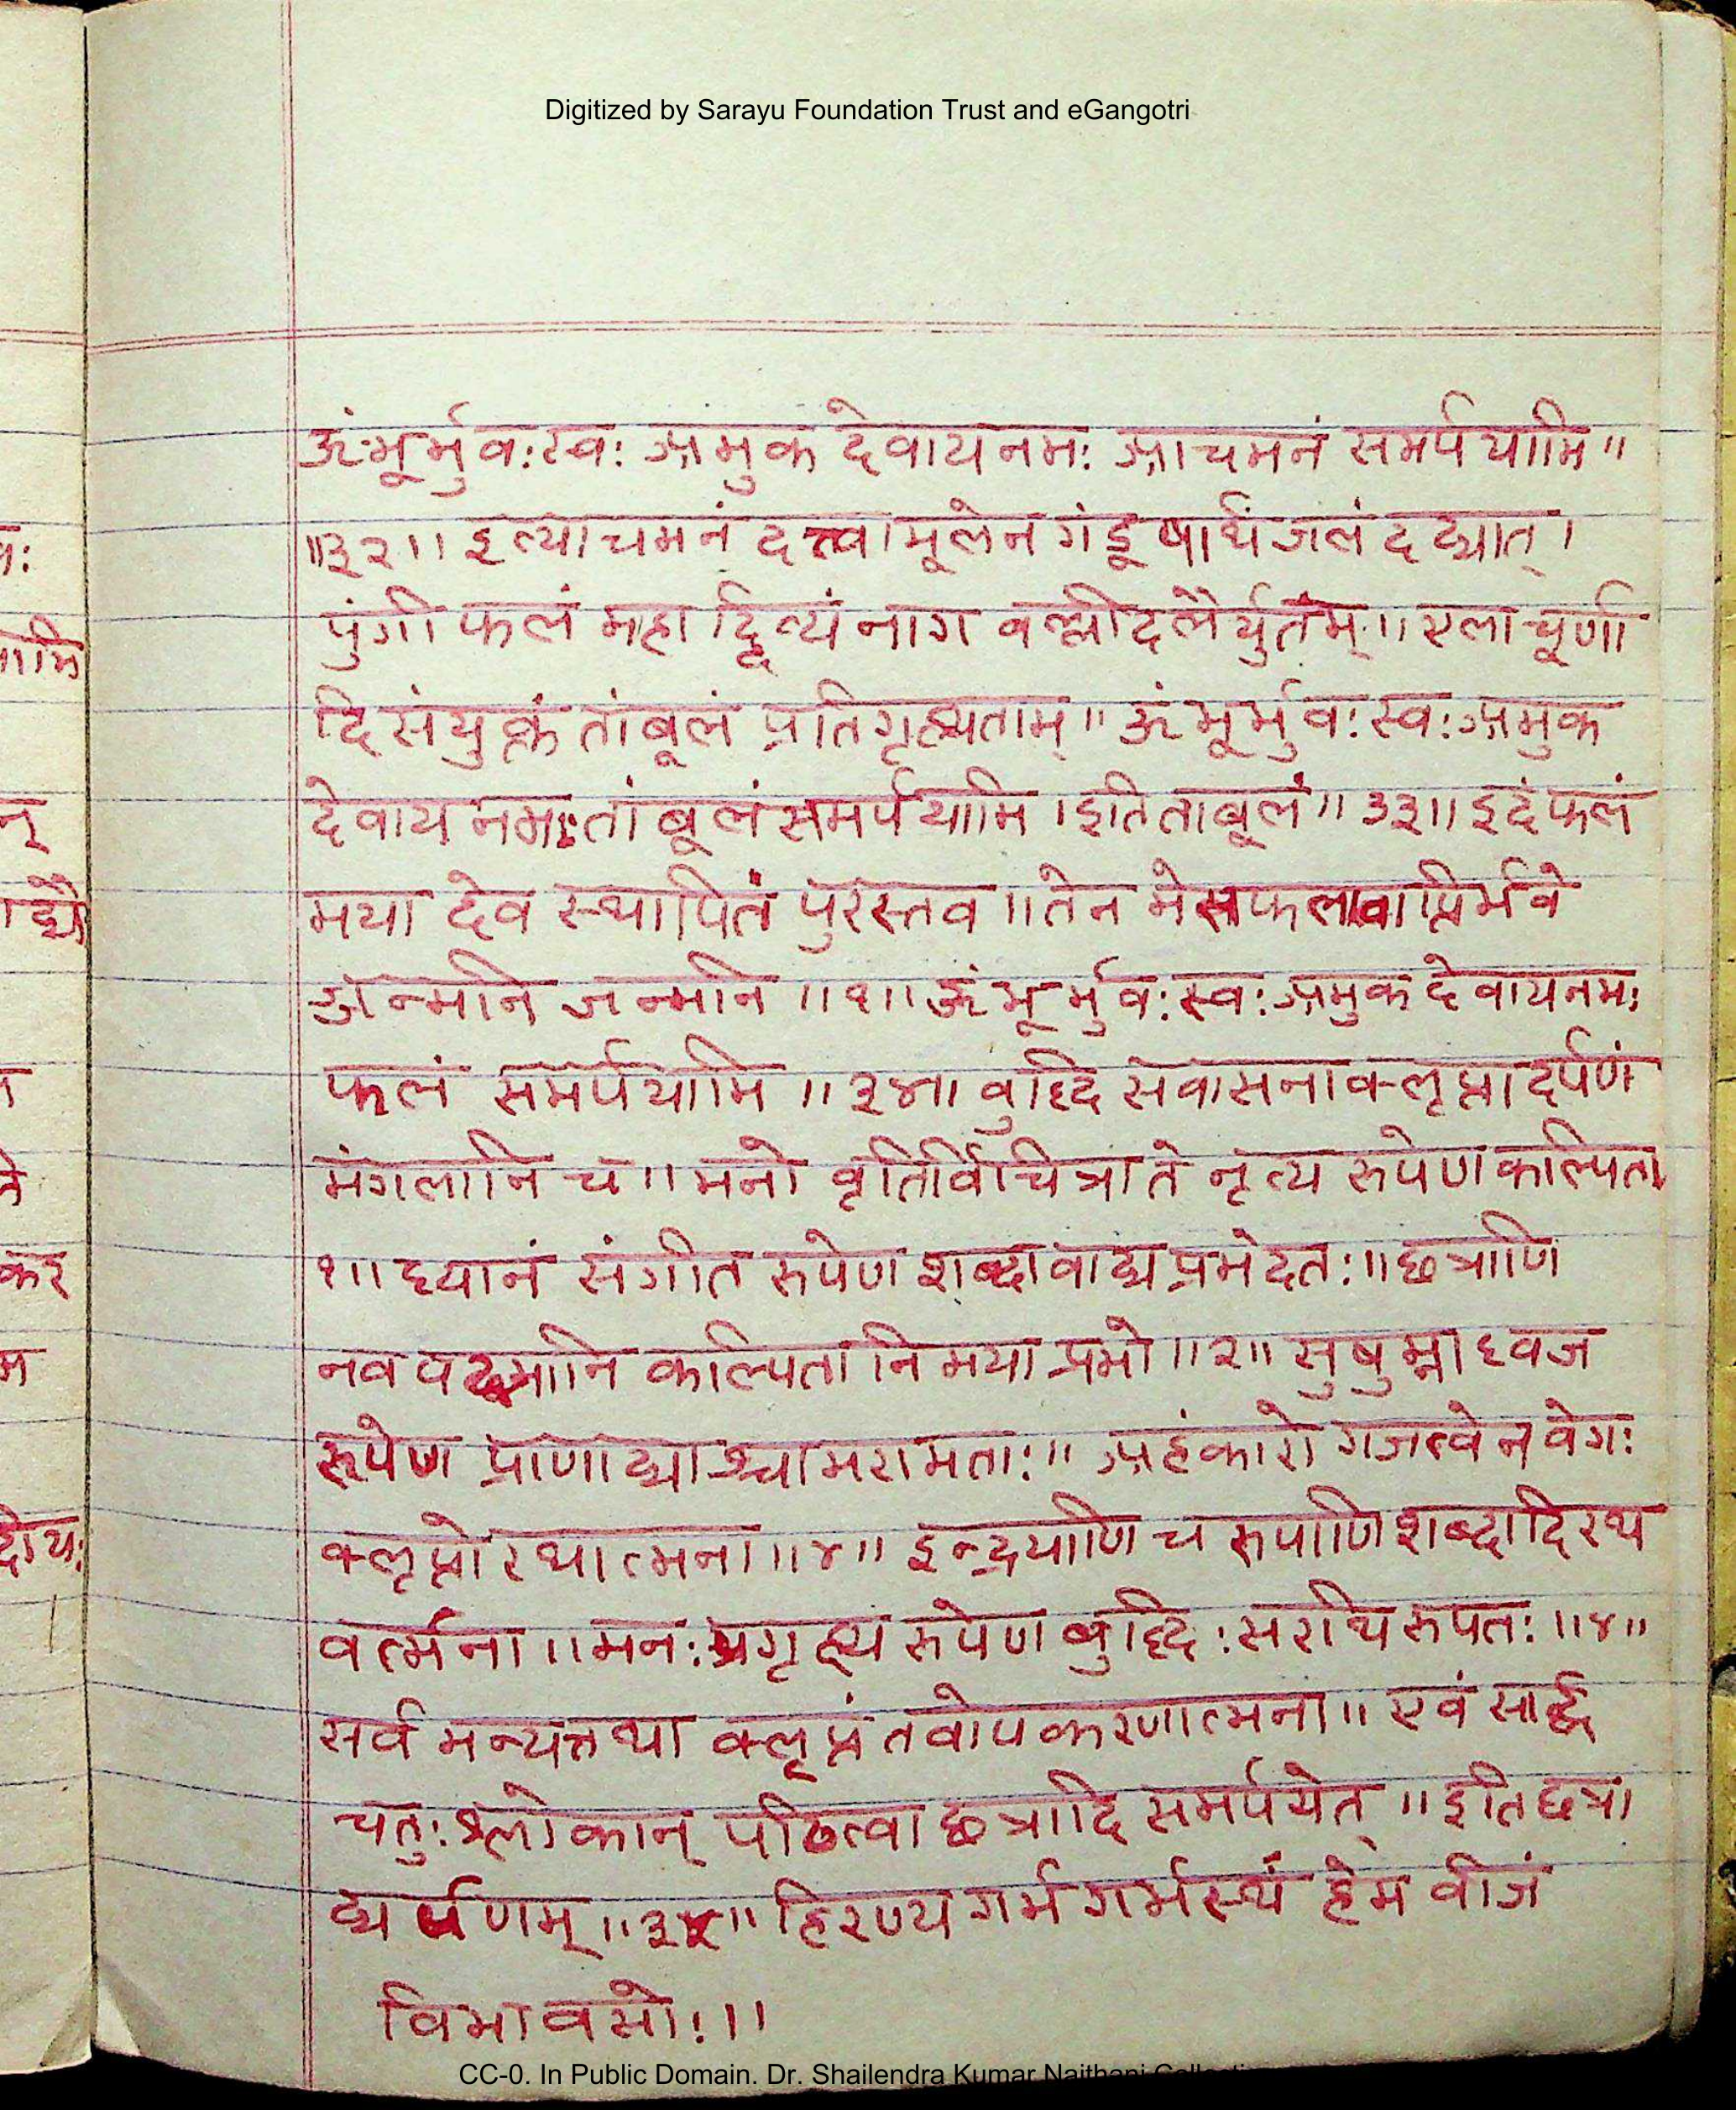 Digitized by Sarayu Foundation Trust and eGangotri
ॐ भूर्भुवः स्वः अमुक देवाय नमः आचमनं समर्पयामि ॥
॥३२॥ इत्याचमनं दत्त्वा मूलेन गंडूषार्थं जलं दद्यात् ।
पुंगी फलं महाद्दिव्यं नाग वल्लीदलैर्युतम् ॥ एला चूर्णा
दि संयुक्तं तांबूलं प्रतिगृह्यताम् ॥ ॐ भूर्भुवः स्वः अमुक
देवाय नमः तांबूलं समर्पयामि । इति ताबूलं ॥ ३३॥ इदं फलं
मया देव स्थापितं पुरस्तव ॥ तेन मे सफलावाप्तिर्भवे
ज्जन्मनि जन्मनि ॥१॥ ॐ भूर्भुवः स्वः अमुक देवाय नमः
फलं समर्पयामि ॥३४॥ वुद्धि सवासनाक्लृप्ता दर्पणं
मंगलानि च ॥ मनो वृतिर्विचित्रा ते नृत्य रुपेण कल्पिता
१॥ ध्यानं संगीत रुपेण शब्दा वाद्य प्रभेदतः ॥ छत्राणि
नव पद्मानि कल्पितानि मया प्रभो ॥२॥ सुषुम्ना ध्वज
रूपेण प्राणाद्याश्चामरामताः ॥ अहंकारो गजत्वेन वेगः
क्लृप्तो रथात्मना ॥४॥ इन्द्रियाणि च रुपाणि शब्दादि रथ
वर्त्मना ॥ मनः प्रगृह्य रुपेण बुद्धिः सराथि रुपतः ॥४॥
सर्व मन्यत्तथा क्लृप्तं तवोपकरणात्मना ॥ एवं सार्द्ध
चतुः श्लोकान् पठित्वा छत्रादि समर्पयेत् ॥ इति छत्रा
द्यर्पणम् ॥३५॥ हिरण्य गर्भ गर्भस्थं हेम वीजं
विभावसोः ॥
CC-0. In Public Domain. Dr. Shailendra Kumar Naithani